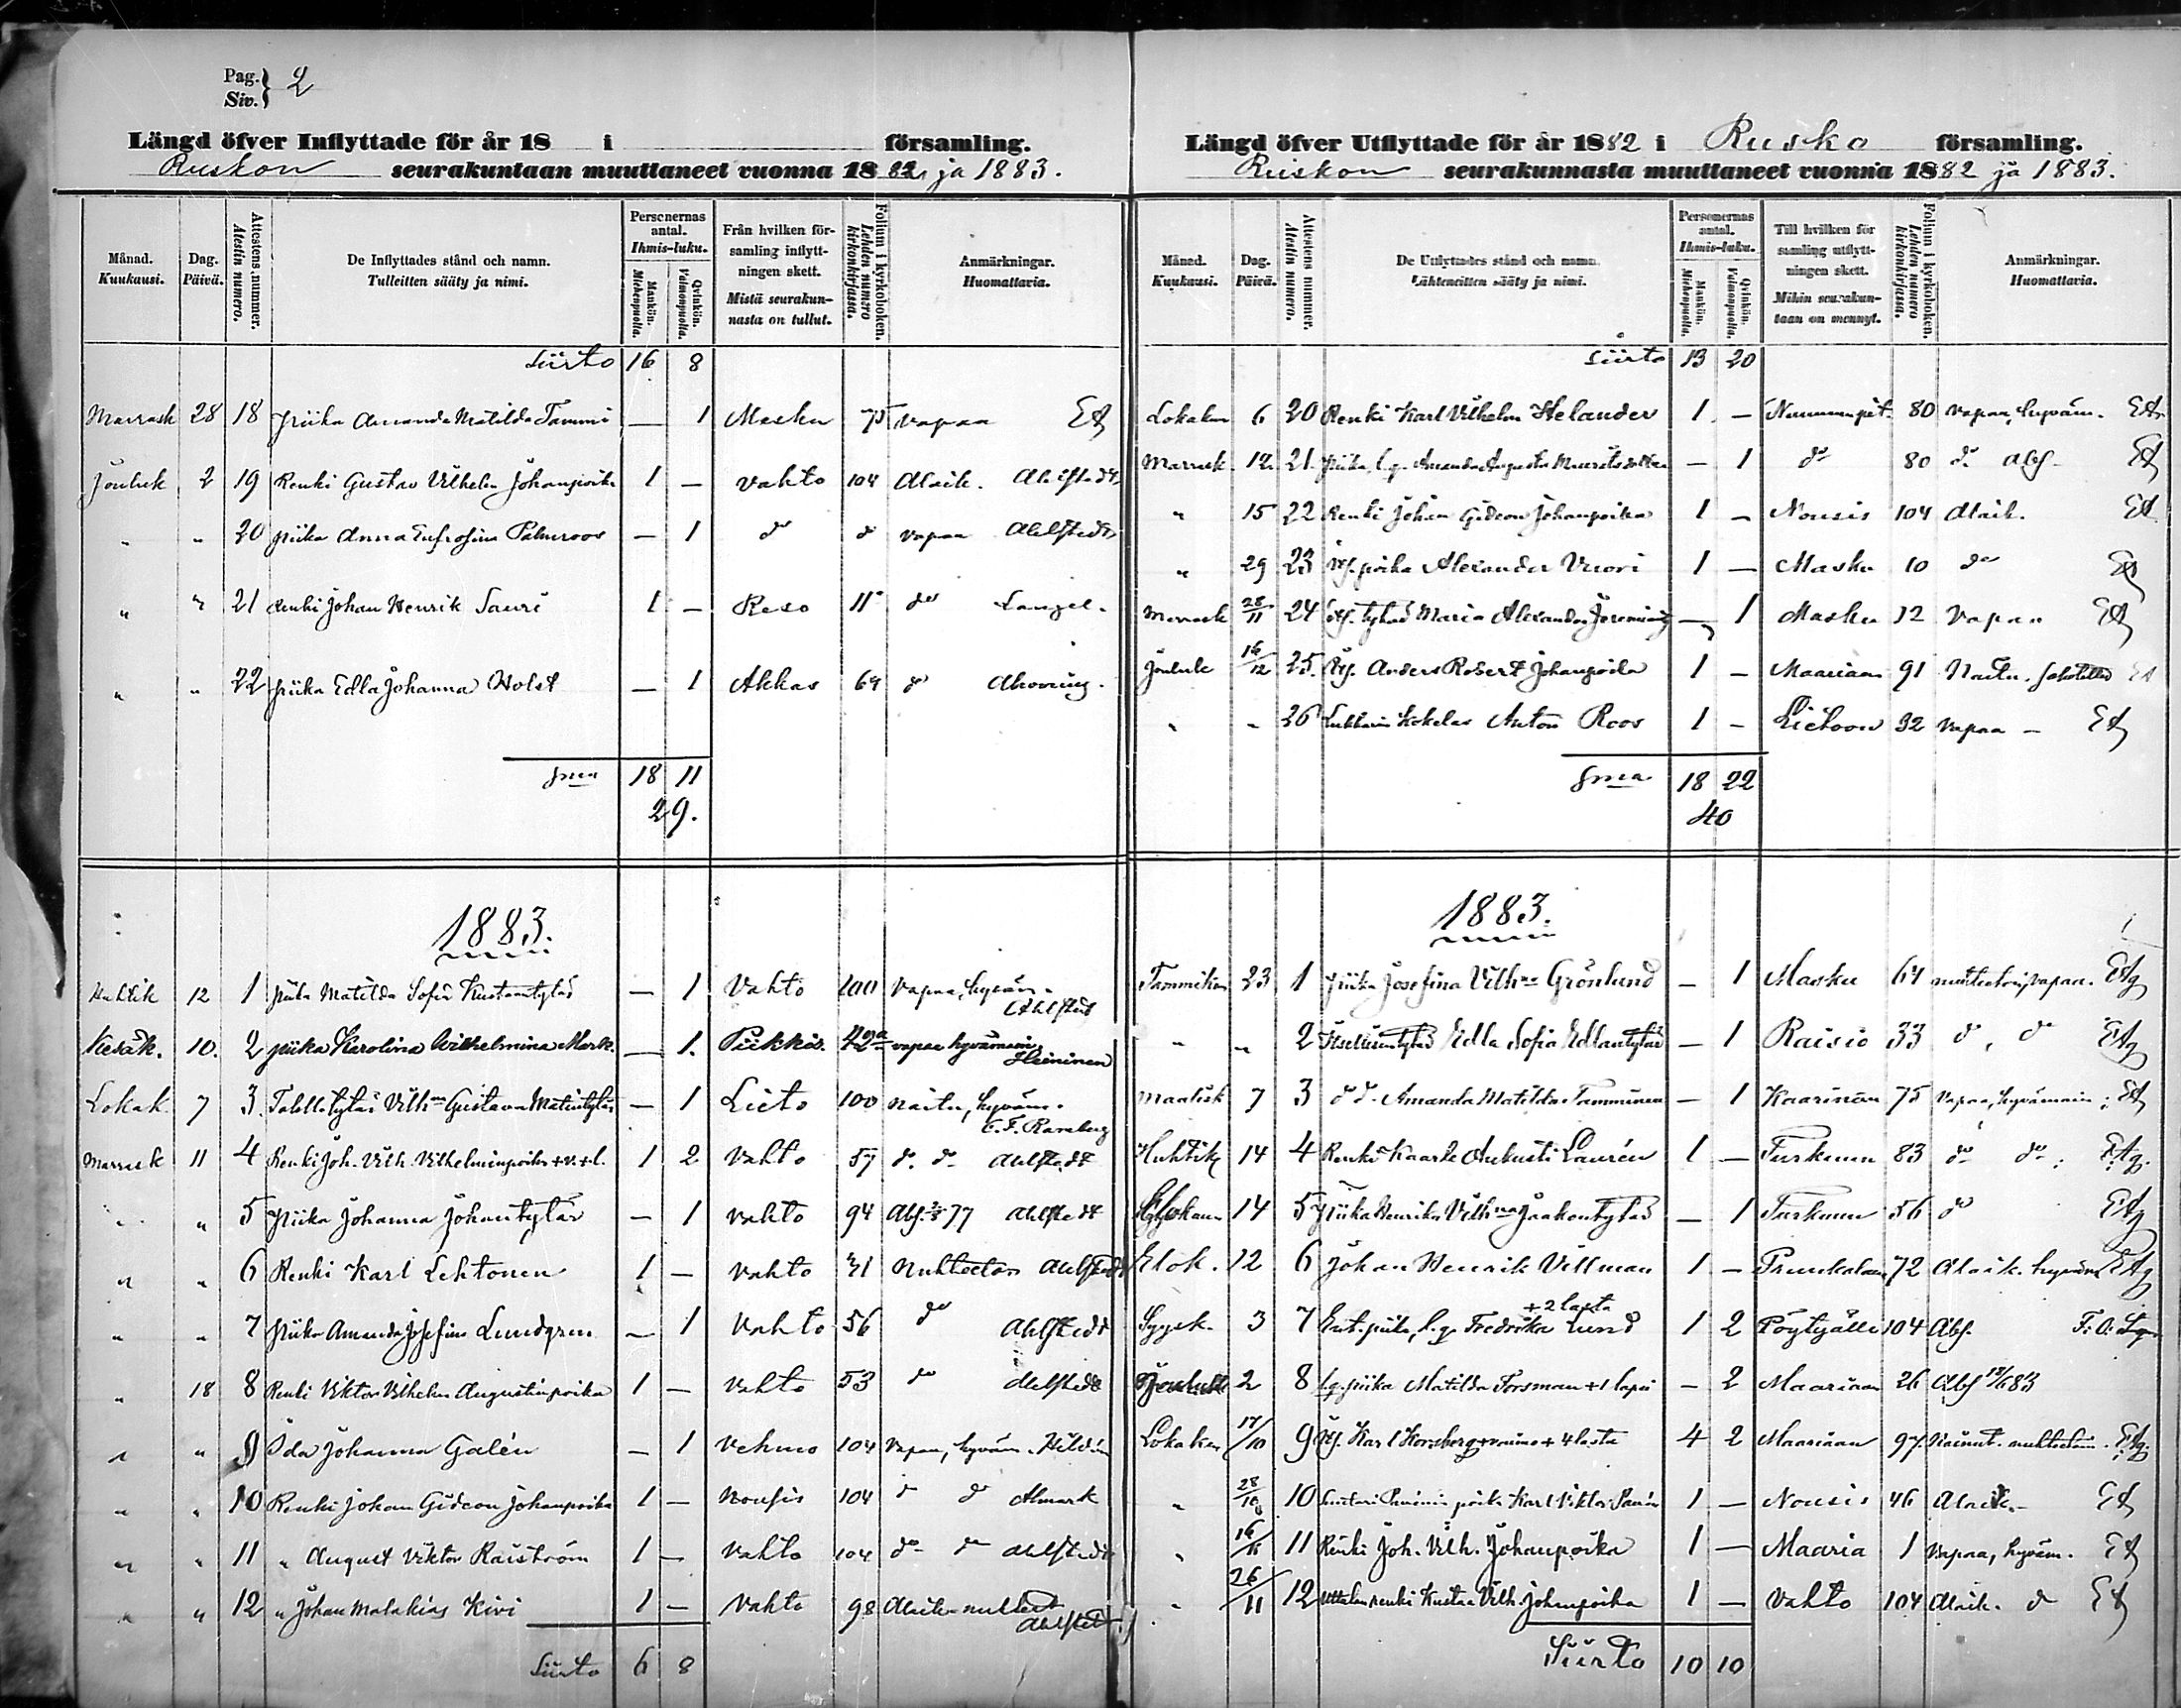 Pag. Siv. } 2
Längd öfver Inflyttade för år 18 i församling.
Ruskon seurakuntaan muuttaneet vuonna 1882 ja 1883.
Månad. Kuukausi. Dag. Päivä. Attestens nummer. Atestin numero. De Inflyttades stånd och namn. Tulleitten sääty ja nimi. Personernas antal. Ihmis-luku. Mankön. Miehenpuolia. Qvinkön. Vaimonpuolia. Från hvilken församling inflyttningen skett. Mistä seurakunnasta on tullut. Folium i kyrkoboken. Lehden numero kirkonkirjassa. Anmärkningar. Huomattavia.
Siirto 16 8
Marrask 28 18 piika Amanda Matilda Tammi — 1 Masku 75 vapaa
Jouluk 2 19 Renki Gustav Vilhelm Johanpoika 1 — Vahto 104 Alaik. Ahlstedt
" " 20 piika Anna Eufrosina Palmroos — 1 do do vapaa Ahlstedt
" " 21 Renki Johan Henrik Sauri 1 — Reso 11 do
" " 22 piika Edla Johanna Holst — 1 Akkas 69 do
Sma 18 11
29.
1883.
Huhtik 12 1 piika Matilda Sofia Kustaantytär — 1 Vahto 100 vapaa, hyväm.
Ahlstedt
Kesäk. 10. 2 piika Karolina Wilhelmina Mark. — 1. Piikkiö. 42 vapaa hyvämain.
Heininen
Lokak. 7 3. Talollistytär Vilhna Gustava Matintytär — 1 Lieto 100 naim., hyväm.
Marrask 11 4 Renki Joh. Vilh. Vilhelminpoika + v. + l. 1 2 Vahto 57 do do Ahlstedt
" " 5 piika Johanna Johantytär — 1 Vahto 94 Abs. 77 Ahlstedt
" " 6 Renki Karl Lehtonen 1 — Vahto Nuhteeton Ahlstedt
" " 7 piika Amanda Josefina Lundgren — 1 Vahto 56 do Ahlstedt
" 18 8 Renki Viktor Vilhelm Augustinpoika 1 — Vahto 53 do Ahlstedt
" " 9 Ida Johanna Galén — 1 Vehmo 104 vapaa, hyväm. Hildén
" " 10 Renki Johan Gideon Johanpoika 1 — Nousis 104 do do Almark
" " 11 " August Viktor Raiström 1 — Vahto 104 do do Ahlstedt
" " 12 " Johan Malakias Kivi 1 — Vahto 98 Alaik.
Ahlstedt
Siirto 6 8
Längd öfver Utflyttade för år 1882 i Rusko församling.
Ruskon seurakunnasta muuttaneet vuonna 1882 ja 1883.
Månad. Kuukausi. Dag. Päivä. Attestens nummer. Atestin numero. De Utflyttades stånd och namn. Lähteneitten sääty ja nimi. Personernas antal. Ihmis-luku. Mankön. Miehenpuolia. Qvinkön. Vaimonpuolia. Till hvilken församling utflyttningen skett. Mihin seurakuntaan on mennyt. Folium i kyrkoboken. Lehden numero kirkonkirjassa. Anmärkningar. Huomattavia.
Siirto 13 20
Lokakuu 6 20 Renki Karl Vilhelm Helander 1 — 80 vapaa, hyväm.
Marrask 12. 21. piika, l.g. Amanda Augusta — 1 do 80 do Abs.
" 15 22 Renki Johan Gideon Johanpoika 1 — Nousis 104 Alaik.
" 29 23 poika Alexander Vuori 1 — Masku 10 do
Marrask 28/11 24 tytär Maria Alexandra — 1 Masku 12 Vapaa
Jouluk 16/12 25. Anders Robert Johanpoika 1 — Maarian 91
" " 26 Anton Roos 1 — Lietoon 32 vapaa —
Sma 18 22
40
1883.
Tammikuu 23 1 piika Josefina Vilhna Grönlund — 1 Masku 64 nuhteeton, vapaa.
" " 2 Itsellisentytär Edla Sofia Edlantytär — 1 Raisio 33 do, do
Maalisk 7 3 do do. Amanda Matilda Tamminen — 1 Kaarinan 75 Vapaa, hyvämain.
Huhtik 14 4 Renki Kaarle Aukusti Laurén 1 — Turkuun 83 do do
14 5 piika Henrika Vilhna Jaakontytär — 1 Turkuun 56 do
Elok. 12 6 Johan Henrik Villman 1 — Prunkalaan 72 Alaik. hyväm
Syysk. 3 7 l.g. Fredrika Lund + 2 lasta 1 2 Pöytyälle 104 Abs.
2 8 l.g. piika Matilda Forsman + 1 lapsi — 2 Maariaan 26 Abs 83
Lokakuu 17/10 9 Karl Korsberg + vaimo + 4 lasta 4 2 Maariaan 97.
" 28/10 10 poika Karl Viktor 1 — Nousis 46 Alaik.
" 11 Renki Joh. Vilh. Johanpoika 1 — Maaria 1 Vapaa, hyväm.
" 26/11 12 renki Kustaa Vilh. Johanpoika 1 — Vahto 104 Alaik. do
Siirto 10 10